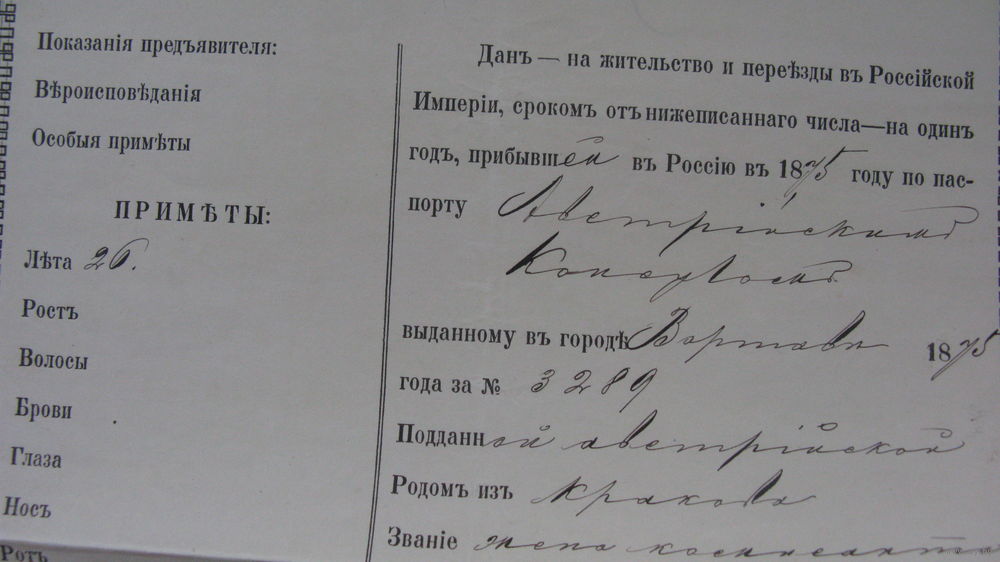 Показанія предъявителя:
Вѣроисповѣданія
Особыя примѣты
ПРИМѢТЫ:
Лѣта 26.
Ростъ
Волосы
Брови
Глаза
Носъ
Ротъ
Данъ — на жительство и переѣзды въ Россійской
Имперіи, срокомъ отъ нижеписаннаго числа—на одинъ
годъ, прибывшей въ Россію въ 1875 году по пас-
порту Австрійскимъ
Консуломъ
выданному въ городѣ Варшавѣ 1875
года за № 3289
Подданной австрійской
Родомъ изъ Кракова
Званіе жена